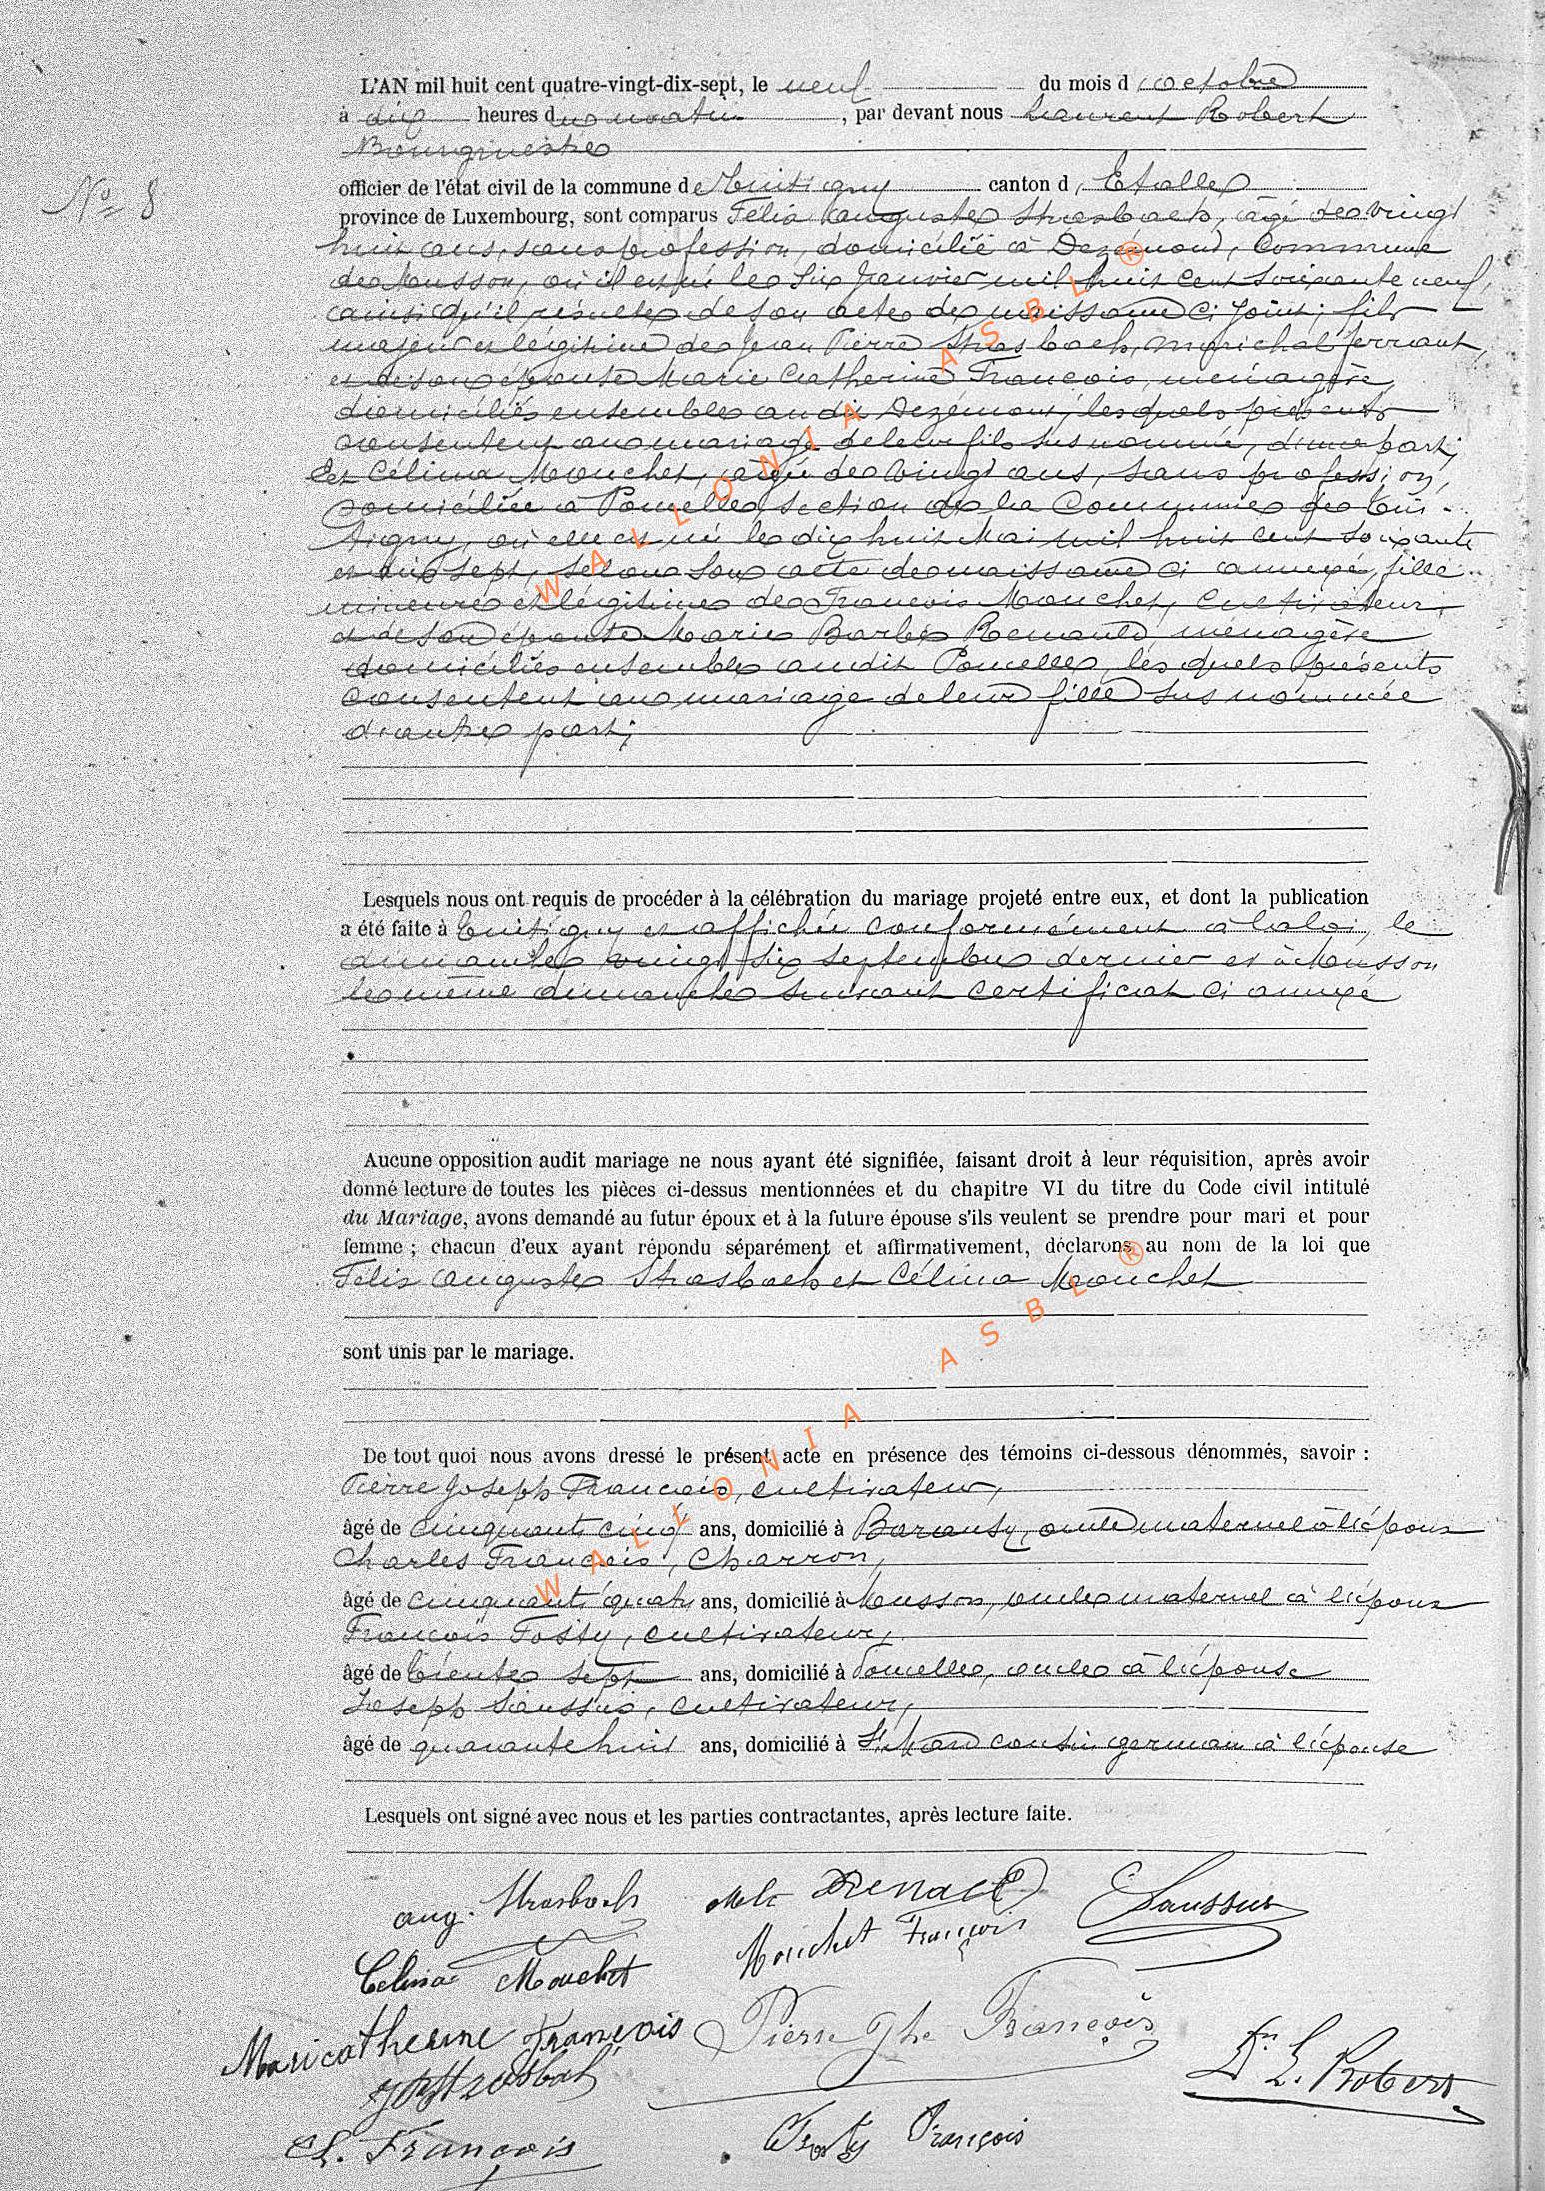 L'AN mil huit cent quatre-vingt-dix-sept, le neuf du mois d'octobre
à dix heures du matin, par devant nous Laurent Robert
Bourgmestre
N° 8
officier de l'état civil de la commune de Tintigny canton d'Etalle
province de Luxembourg, sont comparus Félix Auguste Strasbach, âgé de vingt
huit ans, sans profession, domicilié à Dezémont, Commune
de Musson, où il est né le Six Janvier mil huit cent soixante neuf,
ainsi qu'il résulte de son acte de naissance ci joint; fils
majeur et légitime de Jean Pierre Strasbach, maréchal ferrant,
et de son épouse Marie Catherine François, ménagère,
domiciliés ensemble au dit Dezémont, lesquels présents
consentent au mariage de leur fils sus nommé, d'une part;
Et Célina Mouchet, âgée de vingt ans, sans profession,
domiciliée à Poncelle, section de la Commune de Tin-
tigny, où elle est née le dix huit Mai mil huit cent soixante
et dix sept, selon son acte de naissance ci annexé, fille
mineure et légitime de François Mouchet, cultivateur
et de son épouse Marie Barbe Renauld ménagère
domiciliés ensemble audit Poncelle, lesquels présents
consentent au mariage de leur fille sus nommée
d'autre part;
Lesquels nous ont requis de procéder à la célébration du mariage projeté entre eux, et dont la publication
a été faite à Tintigny et affichée conformément à la loi, le
dimanche vingt six septembre dernier et à Musson
le même dimanche suivant certificat ci annexé
Aucune opposition audit mariage ne nous ayant été signifiée, faisant droit à leur réquisition, après avoir
donné lecture de toutes les pièces ci-dessus mentionnées et du chapitre VI du titre du Code civil intitulé
du Mariage, avons demandé au futur époux et à la future épouse s'ils veulent se prendre pour mari et pour
femme ; chacun d'eux ayant répondu séparément et affirmativement, déclarons au nom de la loi que
Félix Auguste Strasbach et Célina Mouchet
sont unis par le mariage.
De tout quoi nous avons dressé le présent acte en présence des témoins ci-dessous dénommés, savoir :
Pierre Joseph François, cultivateur,
âgé de cinquante cinq ans, domicilié à Baranzy, oncle maternel à l'époux
Charles François, Charron,
âgé de cinquante quatre ans, domicilié à Musson, oncle maternel à l'époux
François Fosty, cultivateur,
âgé de trente sept ans, domicilié à Poncelle, oncle à l'épouse
Joseph Saussus, cultivateur,
âgé de quarante huit ans, domicilié à St Mard cousin germain à l'épouse
Lesquels ont signé avec nous et les parties contractantes, après lecture faite.
aug. Strasbach
Renauld
Saussus
Celina Mouchet
Mouchet François
Maricatherine François
Pierre Jhe François
Dr L. Robert
Strasbach
Ch. François
Fosty François
WALLONIA ASBL ®
WALLONIA ASBL ®